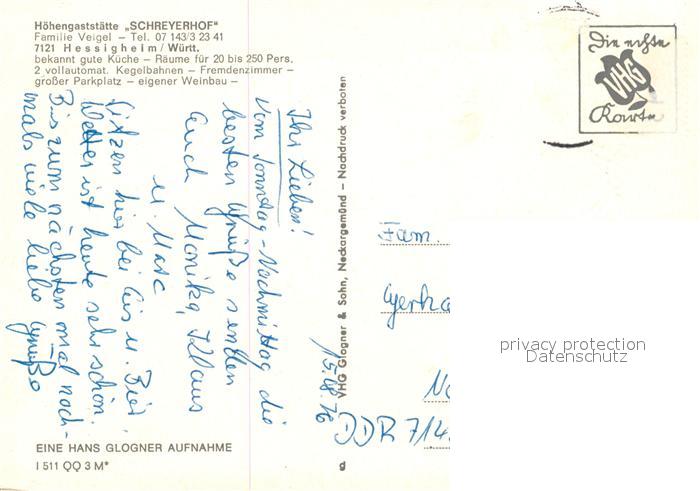 Höhengaststätte „SCHREYERHOF"
Familie Veigel – Tel. 07 143/3 23 41
7121 Hessigheim / Württ.
bekannt gute Küche – Räume für 20 bis 250 Pers.
2 vollautomat. Kegelbahnen – Fremdenzimmer –
großer Parkplatz – eigener Weinbau –
15.08.76
Ihr Lieben!
Vom Sonntag-Nachmittag die
besten Grüße senden
Euch Monika, Klaus
u. Marc
Sitzen hier bei Eis u. Bier.
Wetter ist heute sehr schön.
Bis zum nächsten mal noch-
mals viele liebe Grüße
EINE HANS GLOGNER AUFNAHME
I 511 QQ 3 M*
VHG Glogner & Sohn, Neckargemünd – Nachdruck verboten
g
Die echte
VHG
Karte
Fam.
Gerha
DDR 714
privacy protection
Datenschutz